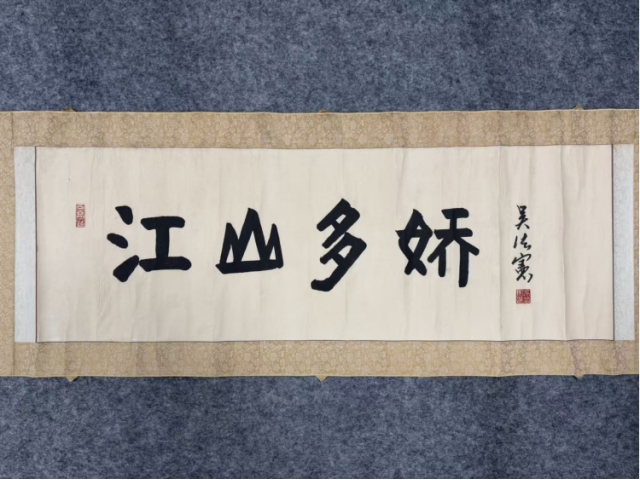 江山多娇
吴法宪